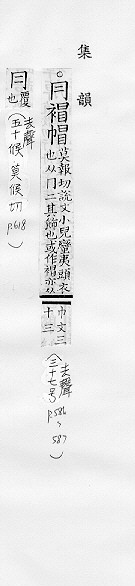 集韻
○冃褶帽莫報切說文小兒蠻夷頭衣也从冂二其飾也或作褶亦从巾文三十三
(去聲三十七号 p.586~587)
冃覆也
(去聲五十候莫候切 p.618)